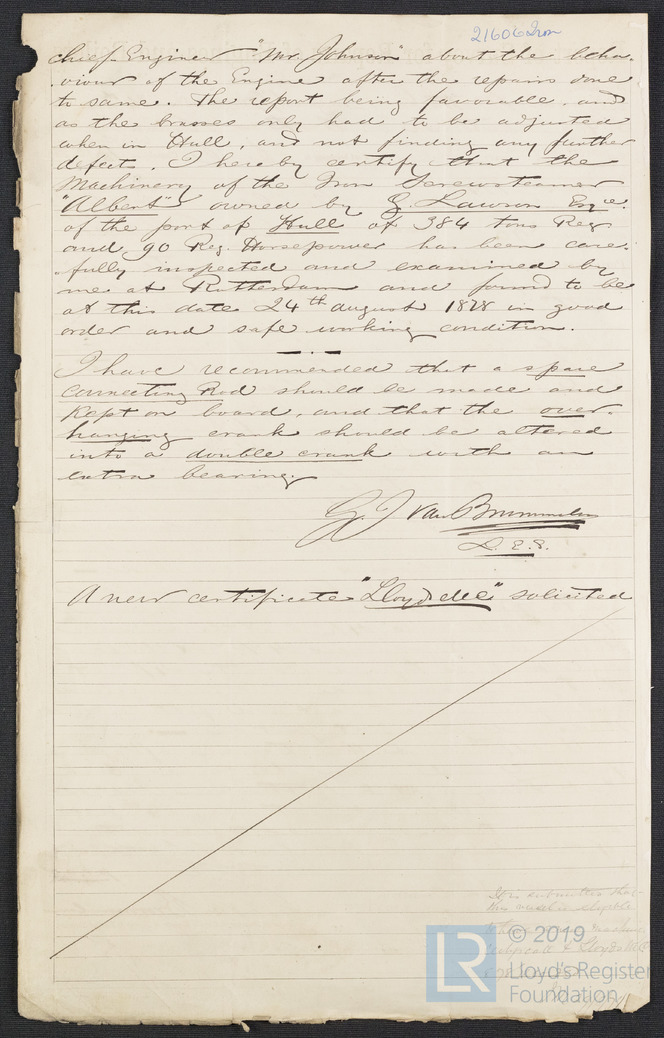 21606 Iron
chief Engineer "Mr. Johnson" about the beha-
-viour of the Engine after the repairs done
to same. The report being favorable, and
as the brasses only had to be adjusted
when in Hull, and not finding any further
defects. I hereby certify that the
Machinery of the Iron Screwsteamer
"Albert" owned by Lawson Esqre.
of the port of Hull of 384 tons Reg
and 90 Reg. Horsepower has been care-
-fully inspected and examined by
me at Rotterdam and found to be
at this date 24th august 1878 in good
order and safe working condition.
I have recommended that a spare
connecting Rod should be made and
Kept on board, and that the over-
hanging crank should be altered
into a double crank with an
extra bearing.
van Brummelen
A new certificate "Lloyds MC" solicited
It is submitted that
this vessel is eligible
LR © 2019
Lloyd's Register
Foundation